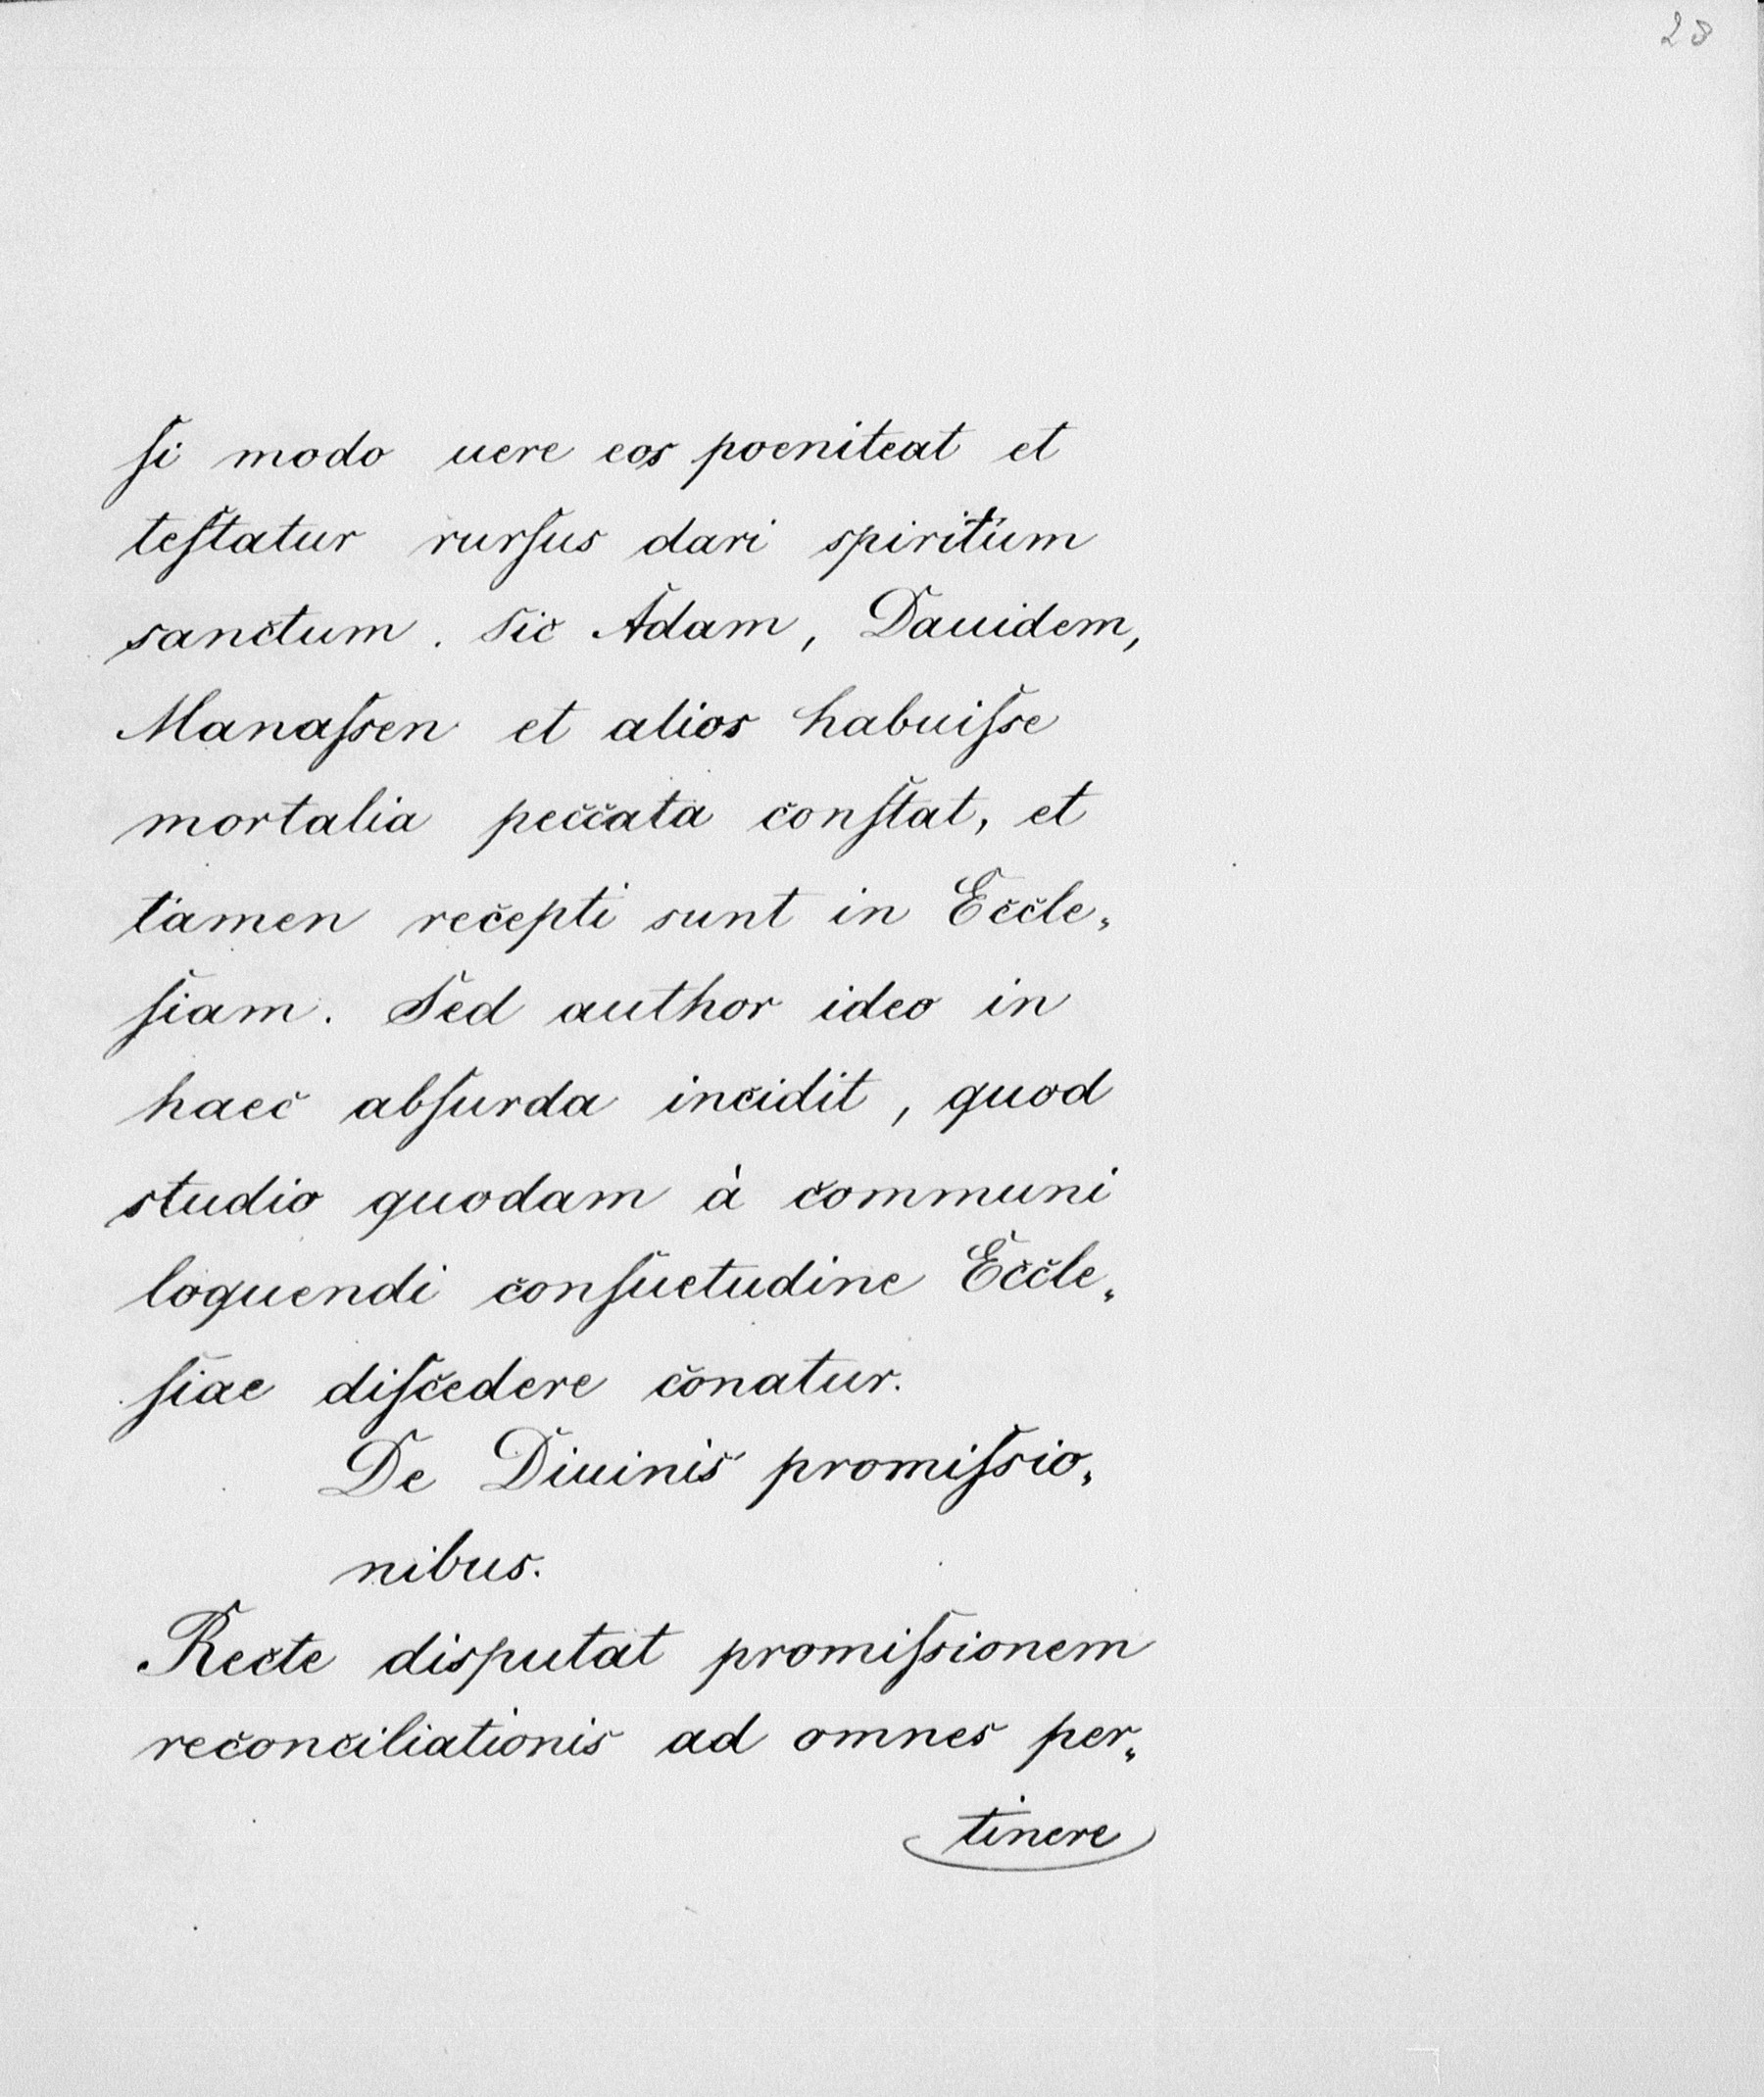 28
ſi modo uere eos poeniteat et
teſtatur rurſus dari spiritum
sanctum. Sic Adam, Dauidem,
Manaſsen et alios habuiſse
mortalia peccata conſtat, et
tamen recepti sunt in Eccle„
ſiam. Sed author ideo in
haec abſurda incidit, quod
studio quodam à communi
loquendi conſuetudine Eccle„
ſiae diſcedere conatur.
De Diuinis promiſsio„
nibus.
Recte disputat promiſsionem
reconciliationis ad omnes per„
tinere